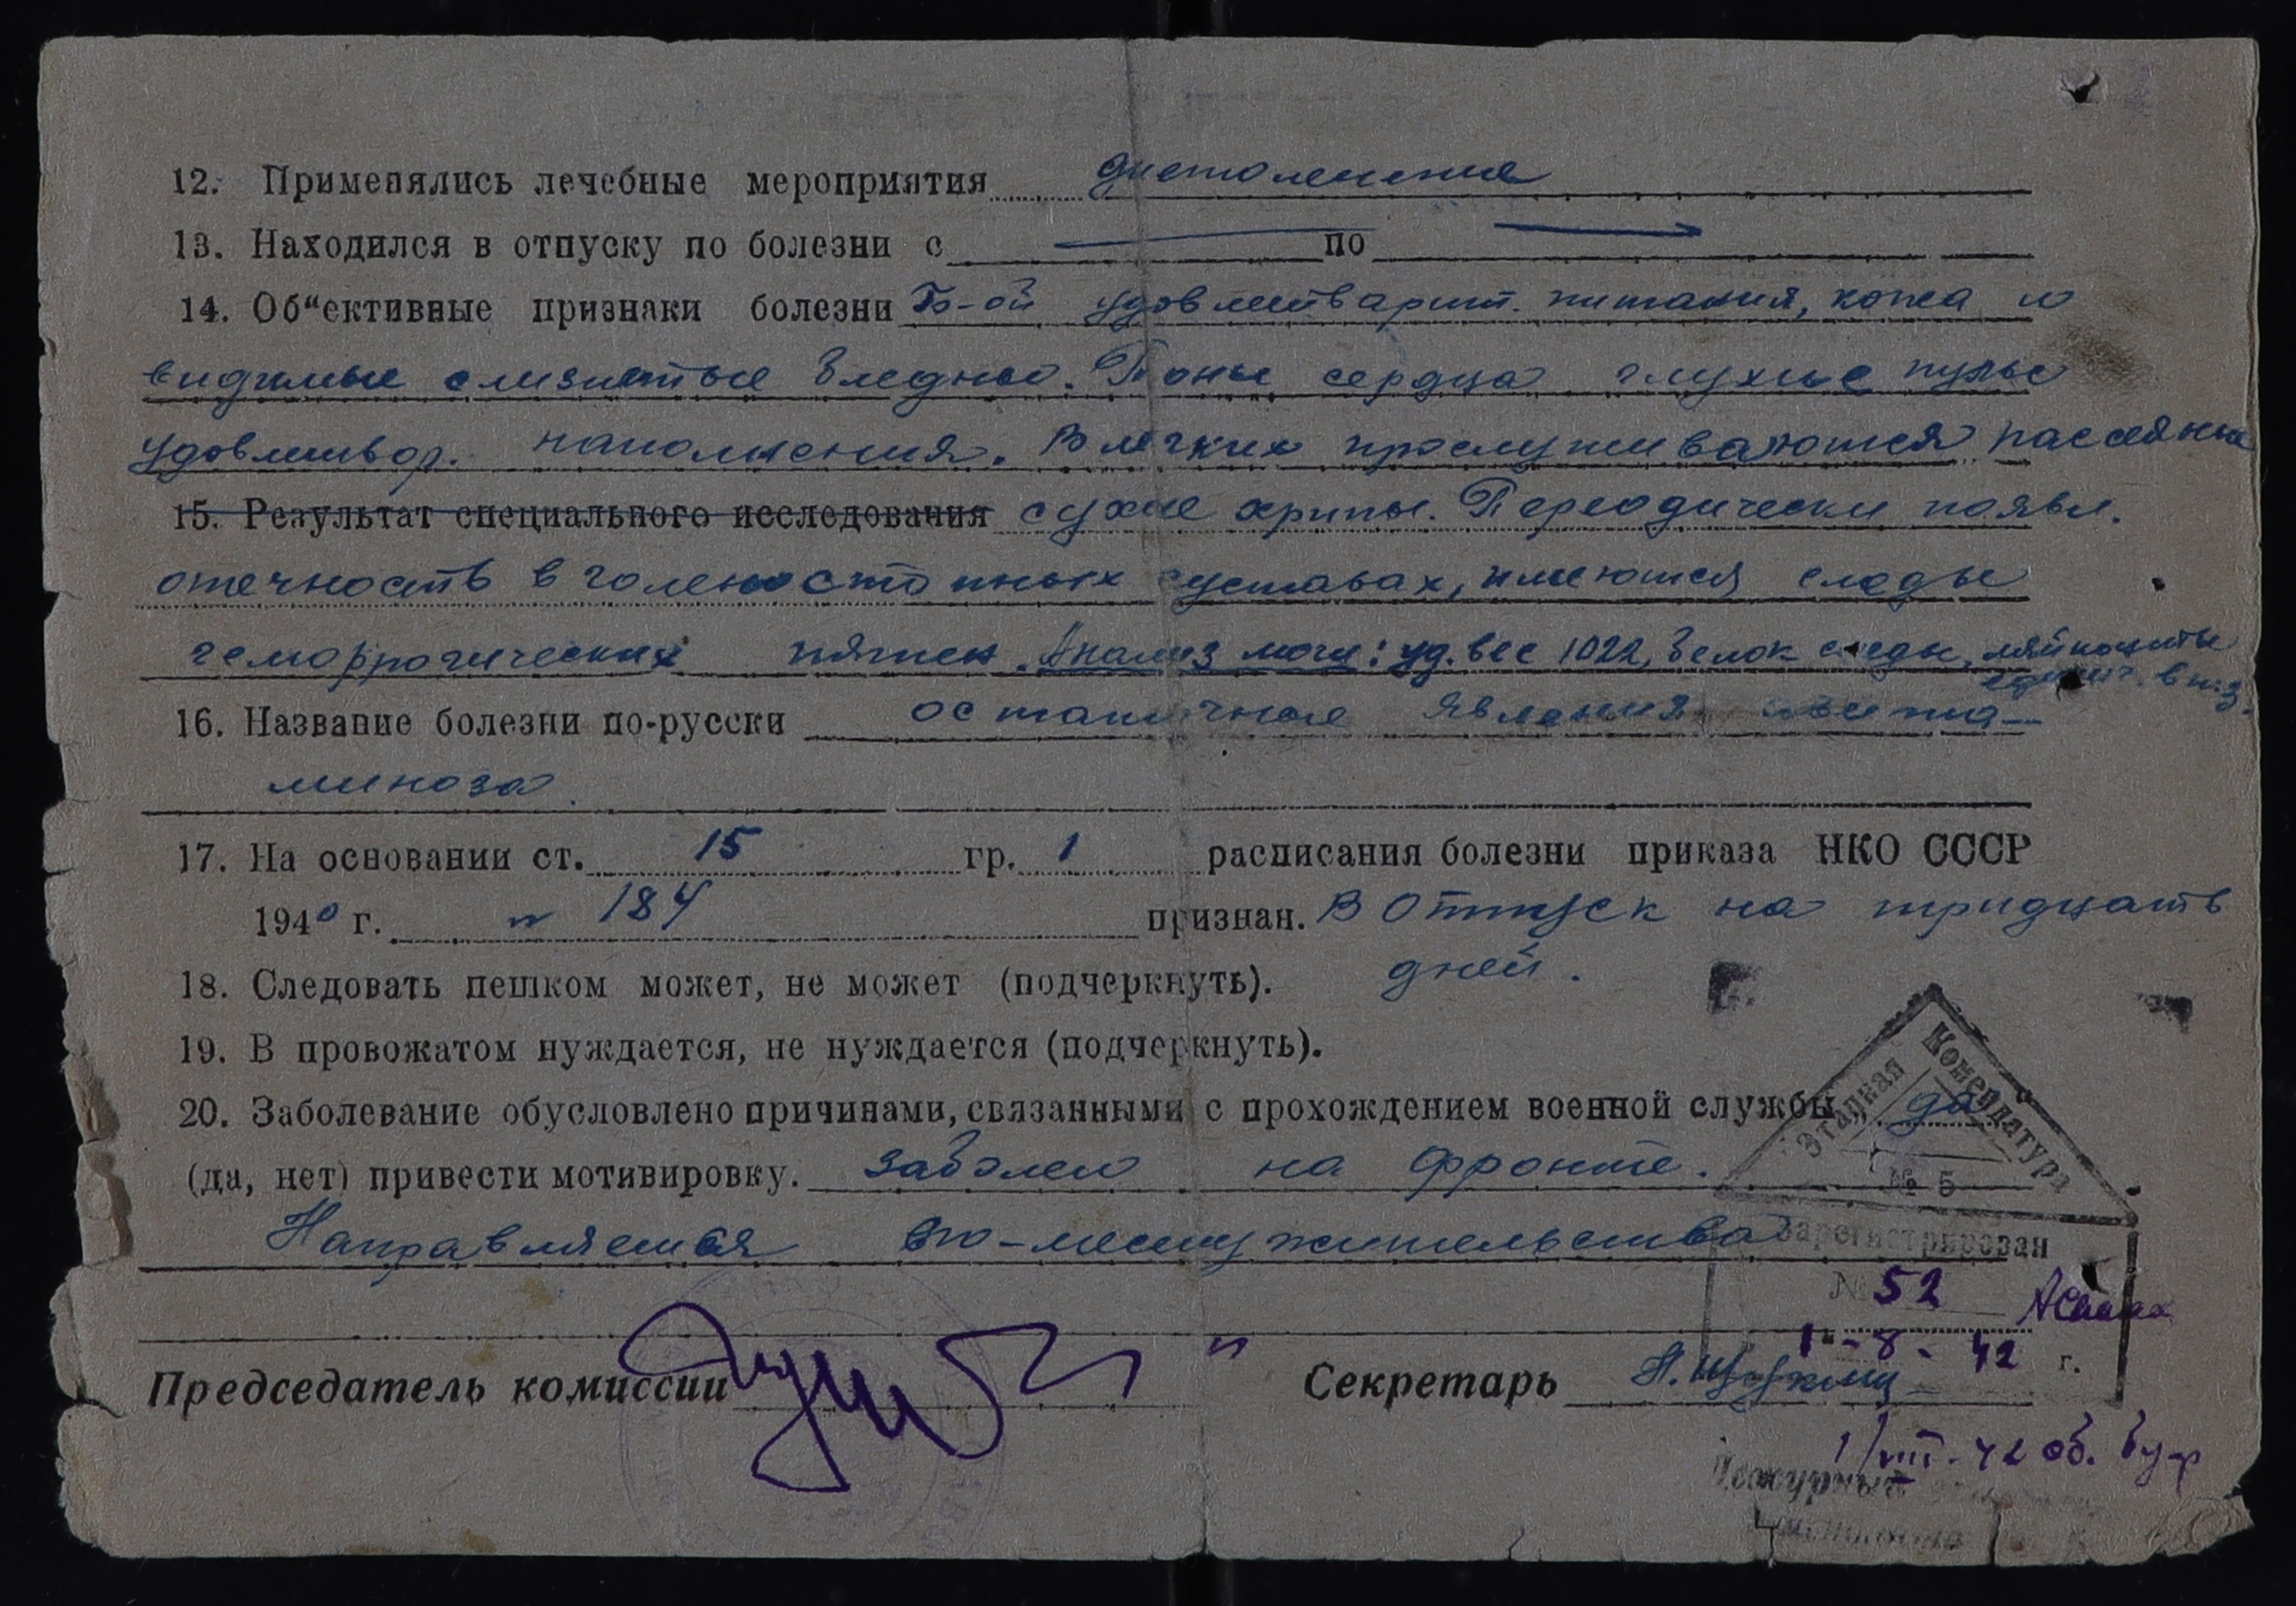 12. Применялись лечебные мероприятия диетолечение
13. Находился в отпуску по болезни с — по —
14. Об“ективные признаки болезни Б-ой удовлетварит. питания, кожа и
видимые слизистые бледны. Тоны сердца глухие пульс
удовлетвор. наполнения. В легких прослушиваются рассеяные
15. Результат специального исследования сухие хрипы. Переодически появл.
отечность в голеностопных суставах, имеются следы
геморрогических пятен. Анализ мочи: уд. вес 1022, белок следы, ляйкоциты
един. в п.з.
16. Название болезни по-русски остаточные явления авита-
миноза.
17. На основании ст. 15 гр. 1 расписания болезни приказа НКО СССР
1940 г. № 184 признан. В Отпуск на тридцать
дней.
18. Следовать пешком может, не может (подчеркнуть).
19. В провожатом нуждается, не нуждается (подчеркнуть).
20. Заболевание обусловлено причинами, связанными с прохождением военной службы да
(да, нет) привести мотивировку. заболел на фронте.
Направляется по-месту жительства
Этапная Комендатура
№ 5
Зарегистрирован
№ 52
1 - 8 - 42 г.
Председатель комиссии Секретарь Н. Щукин
1/VIII-42 об.
Дежурный